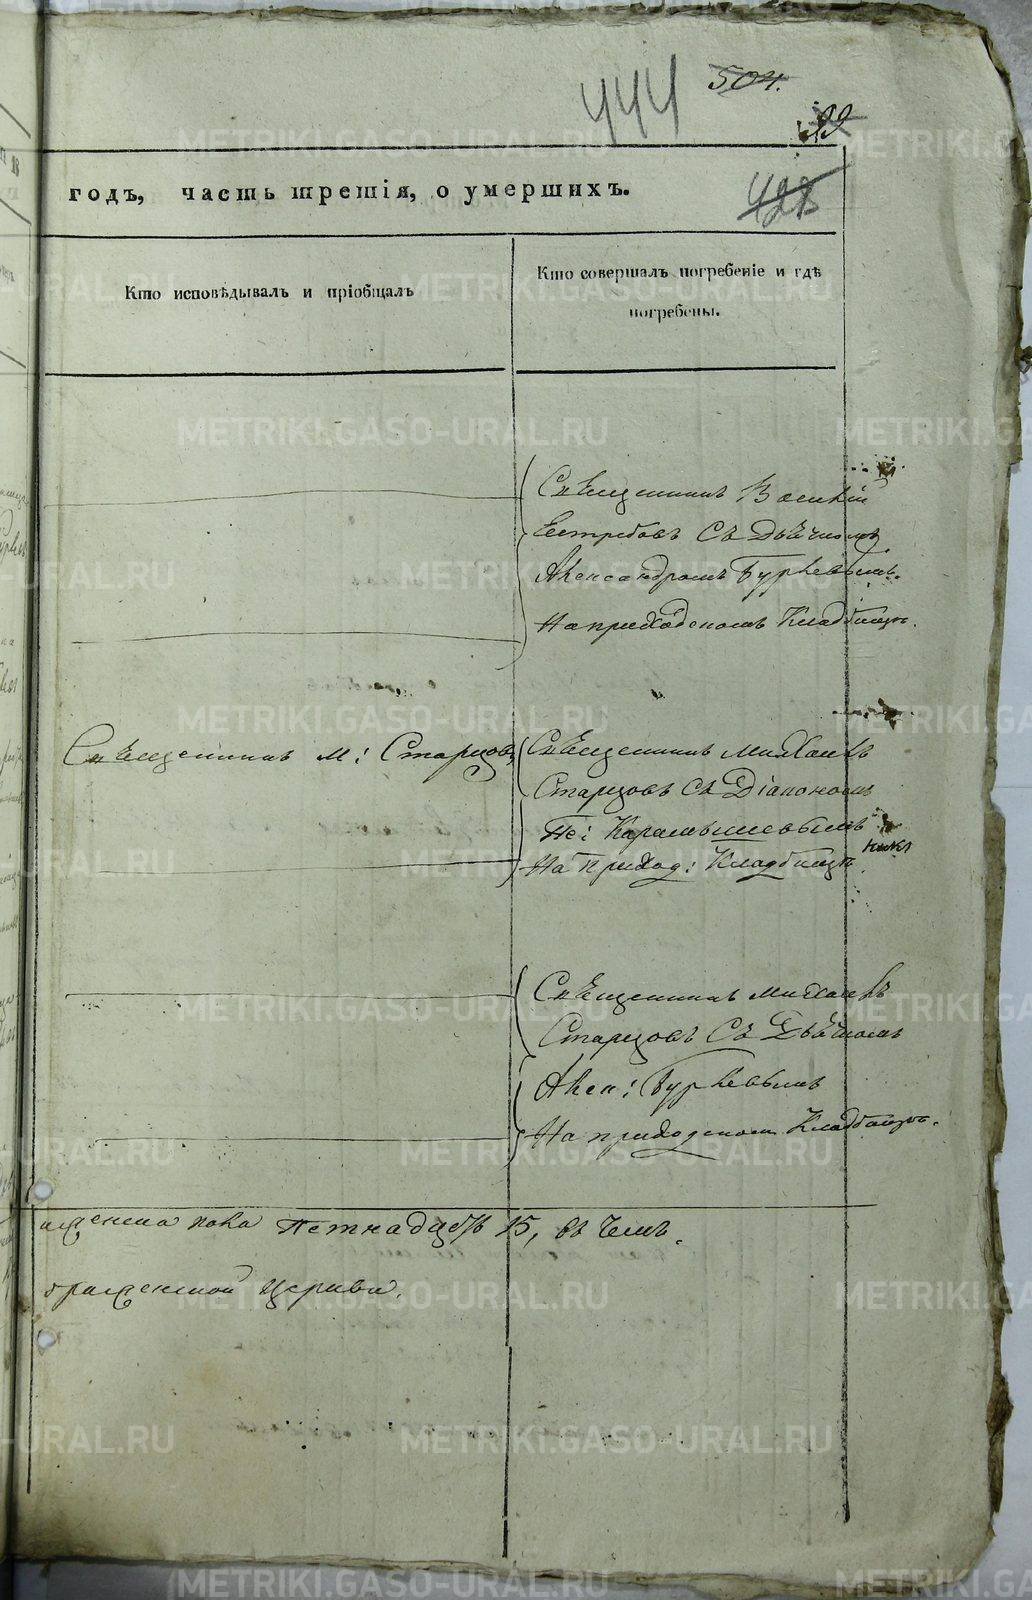 444 504.
99
428
годъ, часть третія, о умершихъ.
Кто исповѣдывалъ и пріобщалъ
Кто совершалъ погребеніе и гдѣ
погребены.
Священникъ Василій
Ястребовъ съ Дьячкомъ
Александромъ Бурлевымъ.
На приходскомъ Кладбищѣ.
Священникъ М: Старцовъ
Священникъ Михаилъ
Старцовъ съ Діакономъ
Пе: Карамышевымъ
На Приход: Кладбищѣ
Священникъ Михаилъ
Старцовъ съ Дьячкомъ
Алек: Бурлевымъ
На приходскомъ Кладбищѣ.
пола Петнадцеть 15, въ чемъ
Церкви.
METRIKI.GASO-URAL.RU